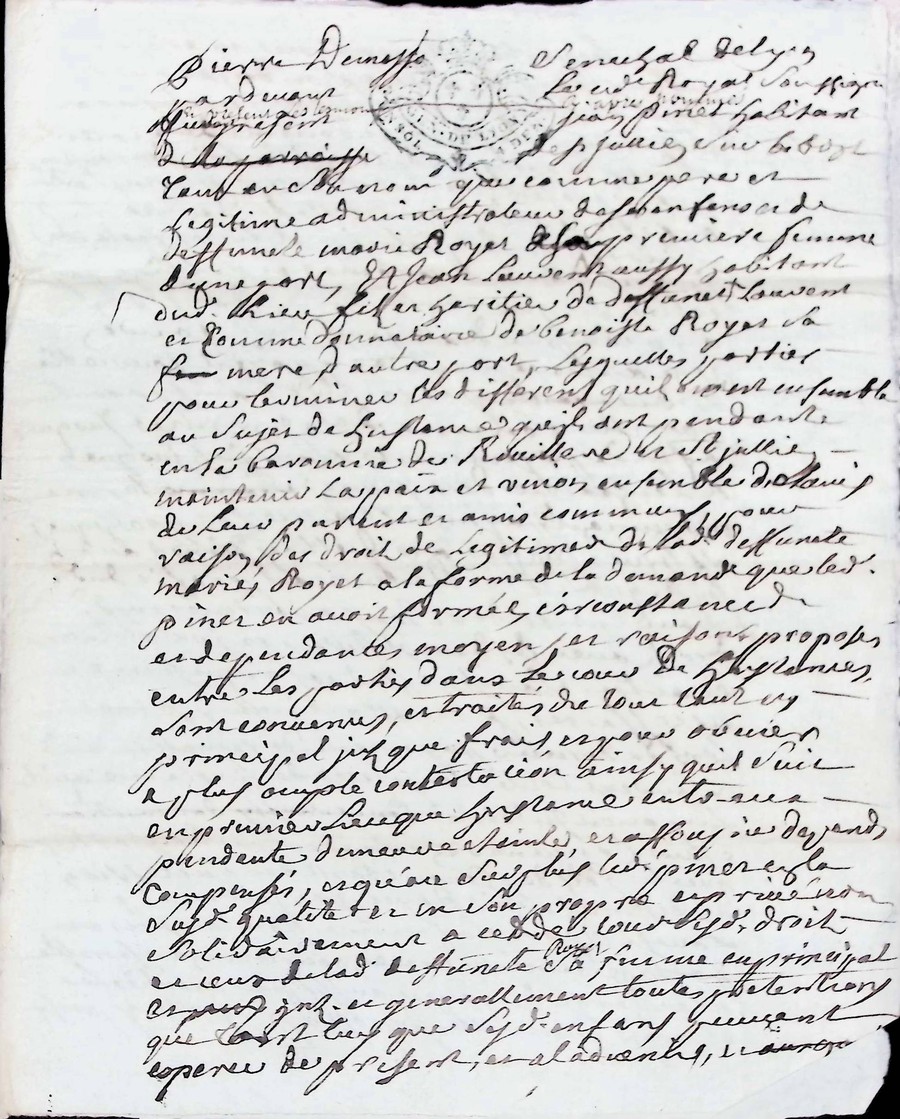 Pierre Demosse Senechal de Lyon
Pardevant Le nore Royal Soussigné
et en presence des temoins cy apres nommés
furent present jean Pinet habitant
de la parroisse de st jullien sur bibost
Tant en son nom que comme pere et
Legitime administrateur de ses enfans et de
deffuncte marie Royet sa premiere femme
d'une part, Et Jean Lauvent aussy habitant
dud. Lieu fils et heritier de deffunct Lauvent
et comme donnataire de benoiste Royet sa
mere, d'autre part, Lesquelles parties
pour terminer les different quil avoient ensemble
au Sujet de Lynstance qu'ils ont pendante
en la baronnie de et st jullien
maintenir La paix et union ensemble de l'avis
de Leur parent et amis communs, pour
raison des droit de Legitime de lad. deffuncte
marie Royet a la forme de la demande que led.
pinet en avoit formée, circonstance
et dependances moyens et raisons proposés
entre Les parties dans Le cour de Lynstances,
sont convenus, et traités du tout tant en
principal jnt que frais, et pour obvier
a plus ample contestation ainsy quil Suit
en premier Lieu que Lynstance entre eux
pendante demeure eteinte, et assoupie depends
compensés, et qu'au Surplus led. pinet en la
Susd. qualité et en Son propre et privé nom
Solidairement a cedé tous Sesd. droit
et ceux de lad. deffuncte Royet Sa femme en principal
et jnt. et generallement toutes pretentions
que tant luy que Sesd. enfans peuvent
esperer de present, et a l'advenir, et